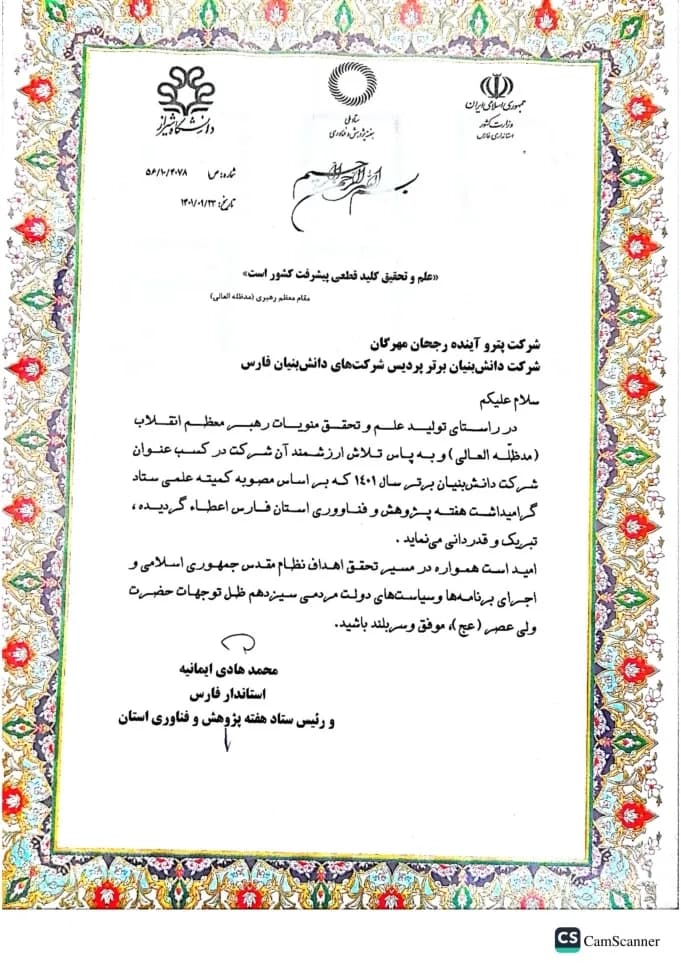 دانشگاه شیراز
ستاد ملی
هفته پژوهش و فناوری
جمهوری اسلامی ایران
وزارت کشور
استانداری فارس
شماره: ص ۵۶/۱۰/۴۰۷۸
تاریخ: ۱۴۰۱/۰۹/۲۳
بسم الله الرحمن الرحیم
«علم و تحقیق کلید قطعی پیشرفت کشور است»
مقام معظم رهبری (مدظله العالی)
شرکت پترو آینده رجحان مهرگان
شرکت دانش‌بنیان برتر پردیس شرکت‌های دانش‌بنیان فارس
سلام علیکم
در راستای تولید علم و تحقق منویات رهبر معظم انقلاب
(مدظلّه العالی) و به پاس تلاش ارزشمند آن شرکت در کسب عنوان
شرکت دانش‌بنیان برتر سال ۱۴۰۱ که بر اساس مصوبه کمیته علمی ستاد
گرامیداشت هفته پژوهش و فناوری استان فارس اعطاء گردیده،
تبریک و قدردانی می‌نماید.
امید است همواره در مسیر تحقق اهداف نظام مقدس جمهوری اسلامی و
اجرای برنامه‌ها و سیاست‌های دولت مردمی سیزدهم ظل توجهات حضرت
ولی عصر (عج)، موفق و سربلند باشید.
محمد هادی ایمانیه
استاندار فارس
و رئیس ستاد هفته پژوهش و فناوری استان
CS CamScanner